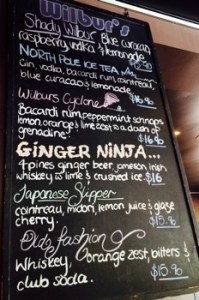 Wilbur's
Shady Wilbur Blue curacao
raspberry, vodka & lemonade
NORTH POLE ICE TEA
Gin, vodka, bacardi rum, cointreau,
blue curacao & lemonade
$16.80
Wilburs Cyclone
Bacardi rum, peppermint schnapps
lemon, orange & lime zest & a dash of
grenadine
$16.80
GINGER NINJA...
4 pines ginger beer, ameron, irish
whiskey & lime & crushed ice. $16
Japanese Slipper
cointreau, midori, lemon juice & glaze
cherry.
$15.80
Olde fashion
Whiskey, orange zest, bitters &
club soda.
$15.80